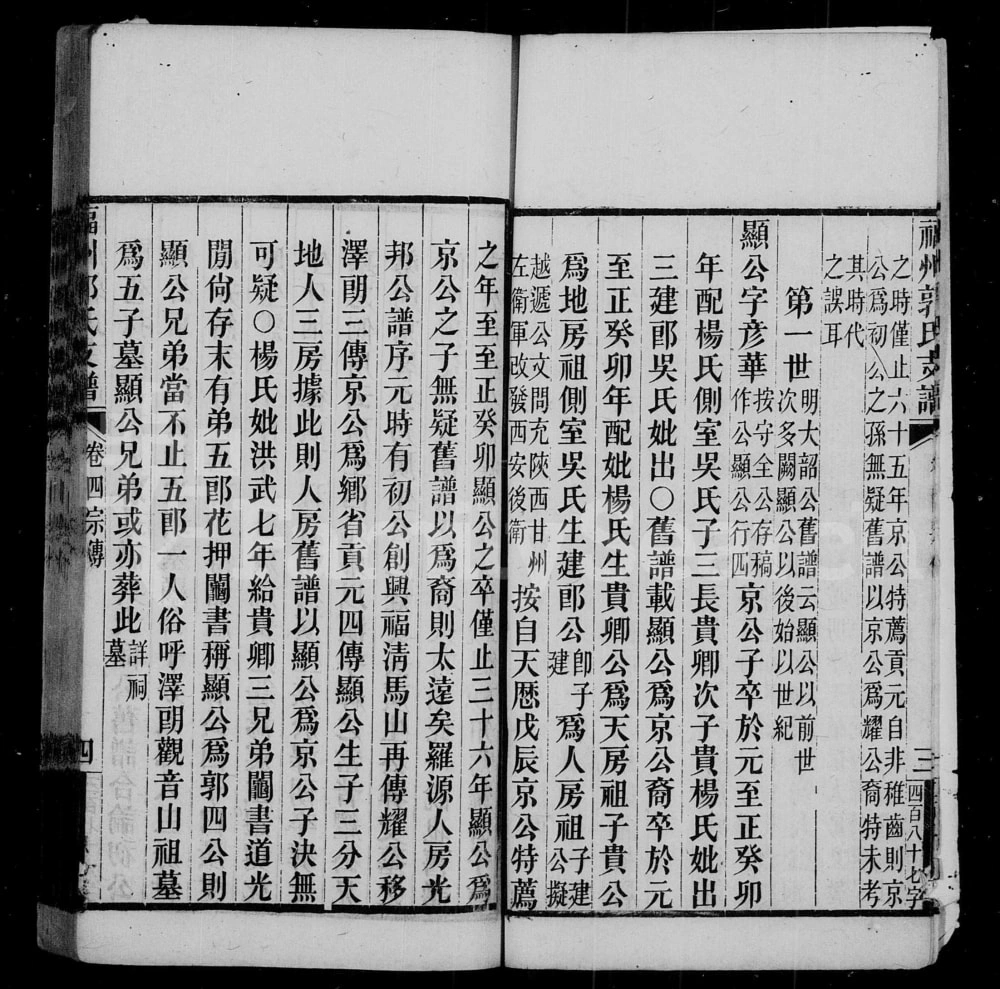 福州郭氏支譜
三
四百八十七字
之時僅止六十五年京公特薦貢元自非稚齒則京
公爲初公之孫無疑舊譜以京公爲耀公裔特未考
其時代
之誤耳
第一世
明大韶公舊譜云顯公以前世
次多闕顯公以後始以世紀
顯公字彥華
按守全公存稿
作公顯公行四
京公子卒於元至正癸卯
年配楊氏側室吳氏子三長貴卿次子貴楊氏妣出
三建郎吳氏妣出○舊譜載顯公爲京公裔卒於元
至正癸卯年配妣楊氏生貴卿公爲天房祖子貴公
爲地房祖側室吳氏生建郎公
卽子
建
爲人房祖
子建
公擬
越遞公文問充陝西甘州
左衛軍改發西安後衛
按自天曆戊辰京公特薦
之年至至正癸卯顯公之卒僅止三十六年顯公爲
京公之子無疑舊譜以爲裔則太遠矣羅源人房光
邦公譜序元時有初公創興福清馬山再傳耀公移
澤朗三傳京公爲鄉省貢元四傳顯公生子三分天
地人三房據此則人房舊譜以顯公爲京公子決無
可疑○楊氏妣洪武七年給貴卿三兄弟鬮書道光
閒尙存末有弟五郎花押鬮書稱顯公爲郭四公則
顯公兄弟當不止五郎一人俗呼澤朗觀音山祖墓
爲五子墓顯公兄弟或亦葬此
詳祠
墓
福州郭氏支譜
卷四宗傳
四